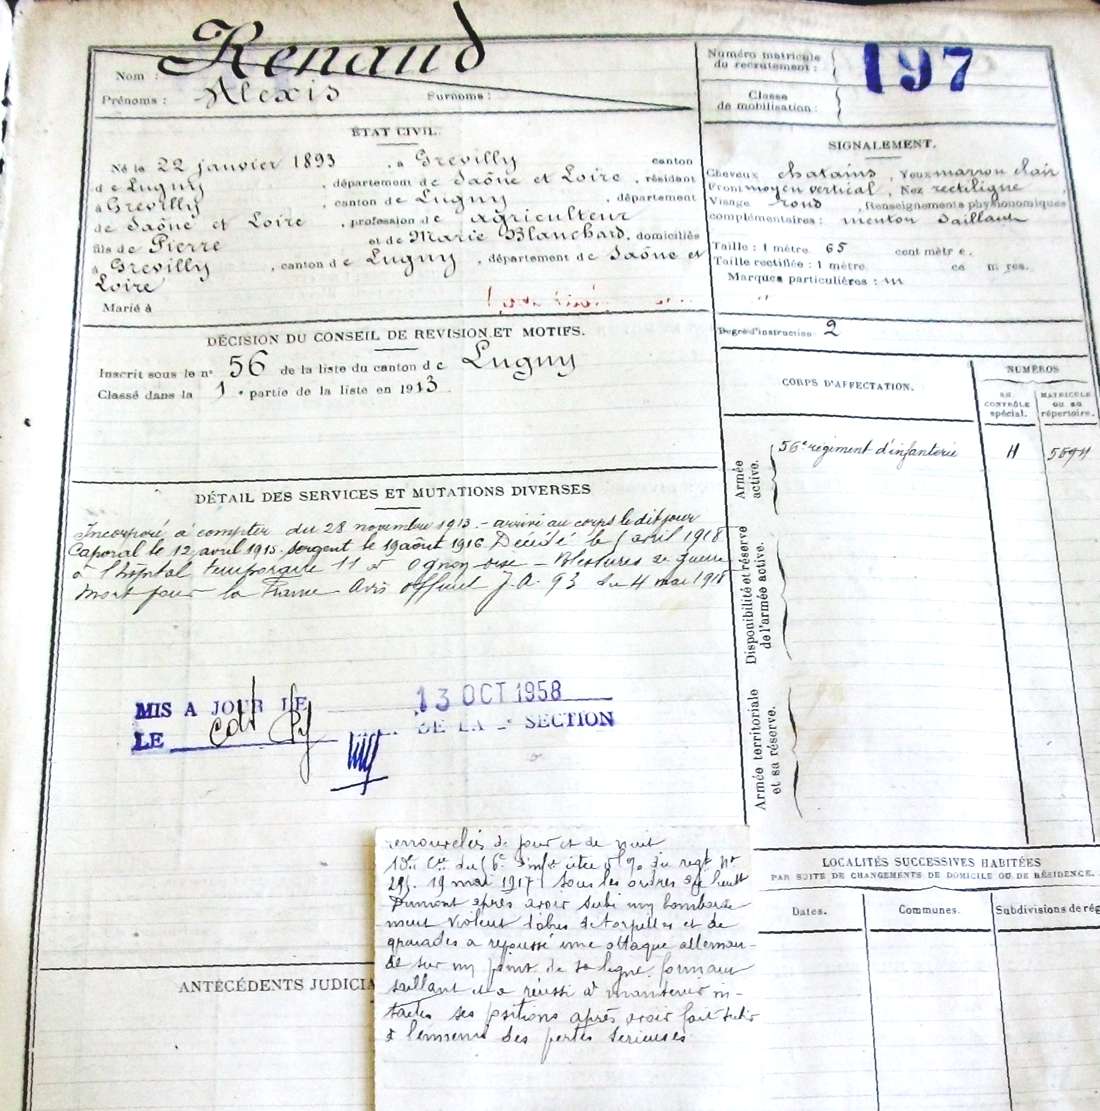 Nom : Renaud
Prénoms : Alexis Surnoms :
Numéro matricule du recrutement : 197
Classe de mobilisation :
ÉTAT CIVIL.
Né le 22 janvier 1893, à Grevilly canton
de Lugny, département de Saône et Loire, résidant
à Grevilly, canton de Lugny, département
de Saône et Loire, profession de agriculteur
fils de Pierre et de Marie Blanchard, domiciliés
à Grevilly, canton de Lugny, département de Saône et
Loire
Marié à
SIGNALEMENT.
Cheveux chatains, Yeux marron clair
Front moyen vertical, Nez rectiligne,
Visage rond, Renseignements physionomiques
complémentaires : menton saillant
Taille : 1 mètre 65 centimètre.
Taille rectifiée : 1 mètre
Marques particulières :
Degré d'instruction : 2
DÉCISION DU CONSEIL DE REVISION ET MOTIFS.
Inscrit sous le n° 56 de la liste du canton de Lugny
Classé dans la 1e partie de la liste en 1913
CORPS D'AFFECTATION.
NUMÉROS
AU CONTRÔLE spécial.
MATRICULE OU AU répertoire.
Armée active.
56e régiment d'infanterie
Disponibilité et réserve de l'armée active.
Armée territoriale et sa réserve.
DÉTAIL DES SERVICES ET MUTATIONS DIVERSES
Incorporé à compter du 28 novembre 1913.- arrivé au corps le dit jour
Caporal le 12 avril 1915. Sergent le 19 août 1916. Décédé le 1 avril 1918
à l'hôpital temporaire 11 d' Ognon oise - Blessures de guerre
Mort pour la France Avis officiel J.A. 93 du 4 mai 1918
MIS A JOUR LE 13 OCT 1958
LE DE LA SECTION
renouvelés de jour et de nuit
10e Cie du 56e Inf citée à l'o. du regt No
19 mai 1917 sous les ordres du
Dumont après avoir subi un bombarde
ment violent d'obus de torpilles et de
grenades a repoussé une attaque alleman-
de sur un point de sa ligne formant
saillant et a réussi à maintenir in-
tactes ses positions après avoir fait subir
à l'ennemi des pertes sérieuses
LOCALITÉS SUCCESSIVES HABITÉES
PAR SUITE DE CHANGEMENTS DE DOMICILE OU DE RÉSIDENCE.
Dates. Communes. Subdivisions de rég
ANTÉCÉDENTS JUDICIA